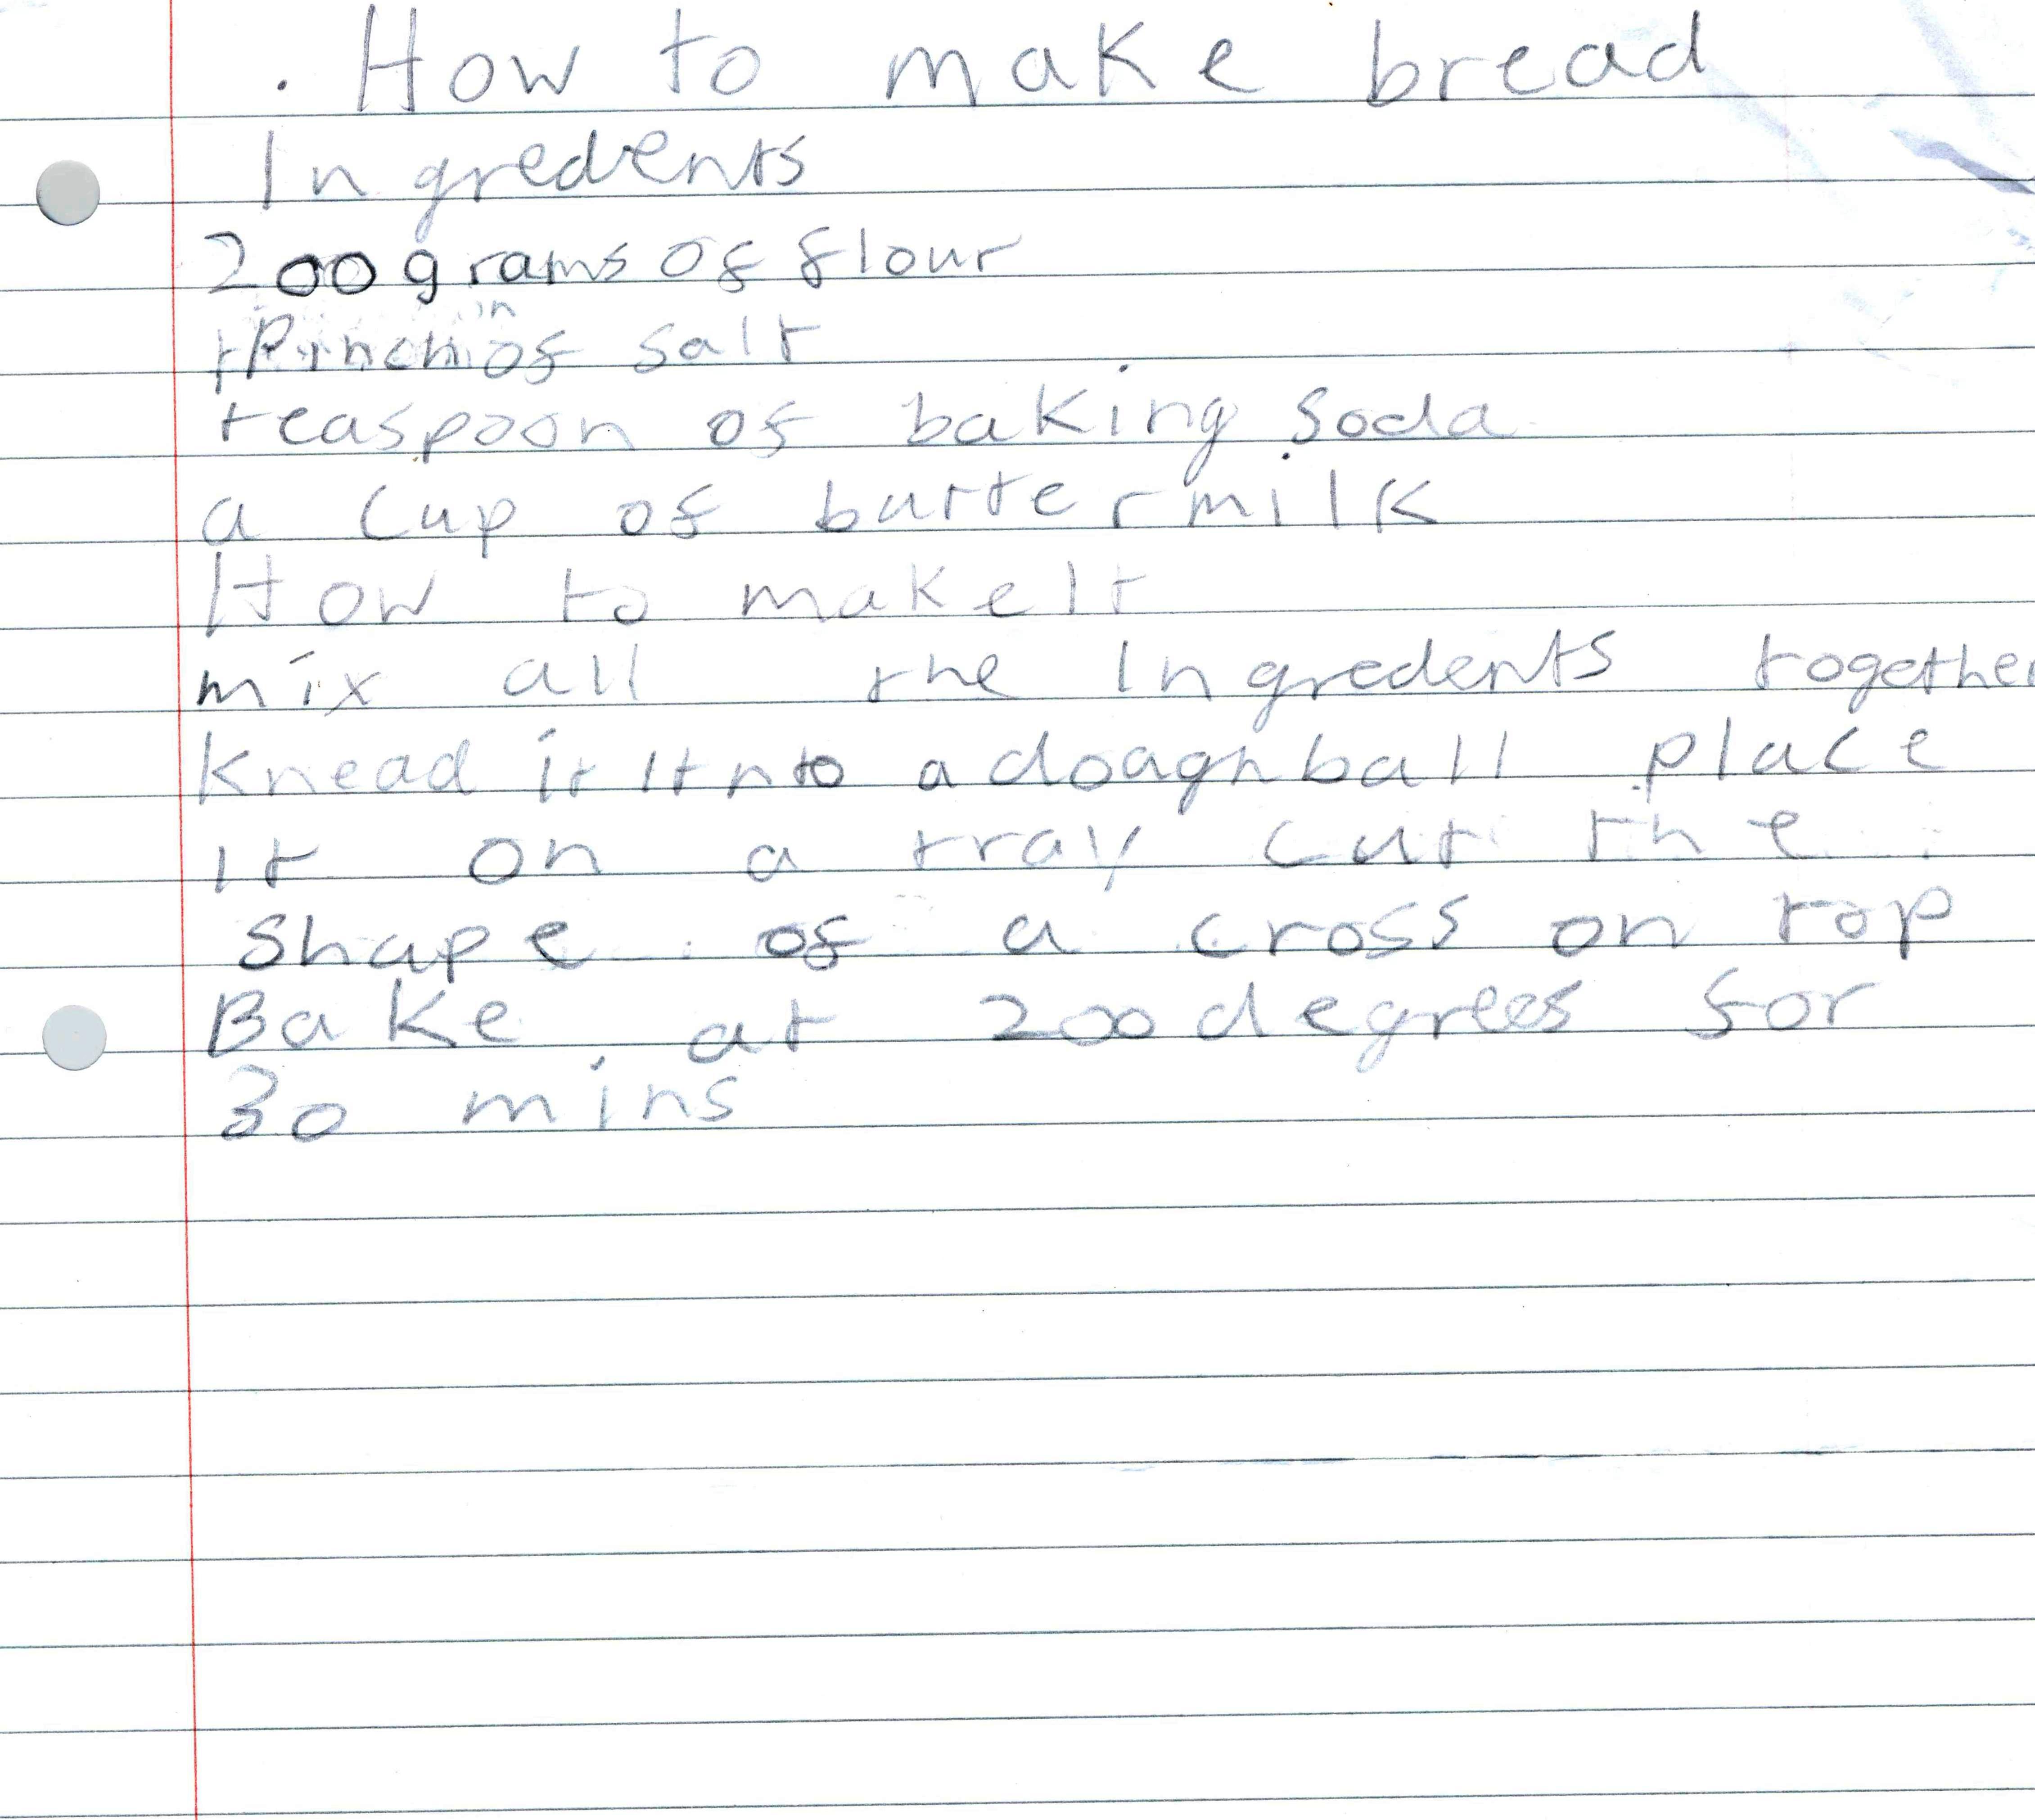 . How to make bread
Ingredents
200 grams of flour
Pinch of salt
teaspoon of baking soda
a cup of buttermilk
How to make It
mix all the Ingredents together
Knead it Itnto a doagh ball place
It on a tray cut the
shape of a cross on top
Bake at 200 degrees for
30 mins